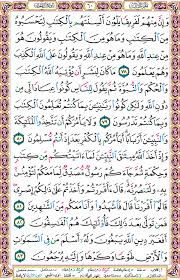 وَإِنَّ مِنْهُمْ لَفَرِيقًا يَلْوُۥنَ أَلْسِنَتَهُم بِٱلْكِتَٰبِ لِتَحْسَبُوهُ
مِنَ ٱلْكِتَٰبِ وَمَا هُوَ مِنَ ٱلْكِتَٰبِ وَيَقُولُونَ هُوَ
مِنْ عِندِ ٱللَّهِ وَمَا هُوَ مِنْ عِندِ ٱللَّهِ وَيَقُولُونَ عَلَى ٱللَّهِ ٱلْكَذِبَ
وَهُمْ يَعْلَمُونَ ٧٨ مَا كَانَ لِبَشَرٍ أَن يُؤْتِيَهُ ٱللَّهُ ٱلْكِتَٰبَ
وَٱلْحُكْمَ وَٱلنُّبُوَّةَ ثُمَّ يَقُولَ لِلنَّاسِ كُونُوا۟ عِبَادًا لِّى مِن
دُونِ ٱللَّهِ وَلَٰكِن كُونُوا۟ رَبَّٰنِيِّۦنَ بِمَا كُنتُمْ تُعَلِّمُونَ ٱلْكِتَٰبَ
وَبِمَا كُنتُمْ تَدْرُسُونَ ٧٩ وَلَا يَأْمُرَكُمْ أَن تَتَّخِذُوا۟ ٱلْمَلَٰٓئِكَةَ
وَٱلنَّبِيِّۦنَ أَرْبَابًا أَيَأْمُرُكُم بِٱلْكُفْرِ بَعْدَ إِذْ أَنتُم مُّسْلِمُونَ ٨٠
وَإِذْ أَخَذَ ٱللَّهُ مِيثَٰقَ ٱلنَّبِيِّۦنَ لَمَآ ءَاتَيْتُكُم مِّن كِتَٰبٍ
وَحِكْمَةٍ ثُمَّ جَآءَكُمْ رَسُولٌ مُّصَدِّقٌ لِّمَا مَعَكُمْ لَتُؤْمِنُنَّ بِهِۦ
وَلَتَنصُرُنَّهُۥ قَالَ ءَأَقْرَرْتُمْ وَأَخَذْتُمْ عَلَىٰ ذَٰلِكُمْ إِصْرِى
قَالُوٓا۟ أَقْرَرْنَا قَالَ فَٱشْهَدُوا۟ وَأَنَا۠ مَعَكُم مِّنَ ٱلشَّٰهِدِينَ ٨١
فَمَن تَوَلَّىٰ بَعْدَ ذَٰلِكَ فَأُو۟لَٰٓئِكَ هُمُ ٱلْفَٰسِقُونَ ٨٢
أَفَغَيْرَ دِينِ ٱللَّهِ يَبْغُونَ وَلَهُۥٓ أَسْلَمَ مَن فِى ٱلسَّمَٰوَٰتِ
وَٱلْأَرْضِ طَوْعًا وَكَرْهًا وَإِلَيْهِ يُرْجَعُونَ ٨٣